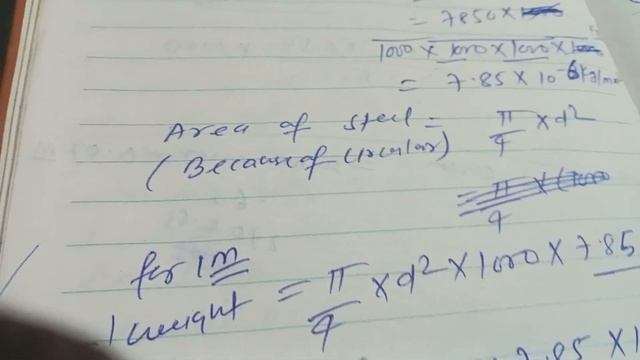 = 7850 ×
1000 × 1000 × 1000 ×
= 7.85 × 10⁻⁶ Kg/mm
Area of steel = π/4 × d²
(Because of circular)
= π/4 ×
for 1m
weight = π/4 × d² × 1000 × 7.85
7.85 × 1